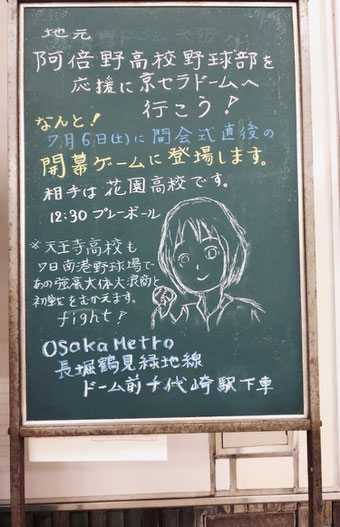 地元
阿倍野高校野球部を
応援に京セラドームへ
行こう!
なんと!
7月6日(土)に開会式直後の
開幕ゲームに登場します。
相手は花園高校です。
12:30 プレーボール
※天王寺高校も
7日南港野球場で
あの強豪大体大浪商と
初戦をむかえます。
fight!
Osaka Metro
長堀鶴見緑地線
ドーム前千代崎駅下車